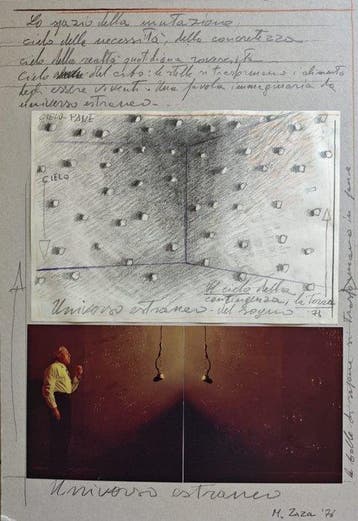 Lo spazio della mutazione.
cielo della necessità, della concretezza
cielo della realtà quotidiana rovesciata
Cielo del cibo: le stelle si trasformano in alimento
degli esseri viventi. Una favola immaginaria da
universo estraneo...
CIELO-PANE
CIELO
Il cielo della
contingenza, la terra
Universo estraneo - del sogno
76
le bolle di sapone si trasformano in pane
Universo estraneo
M. Zaza '76